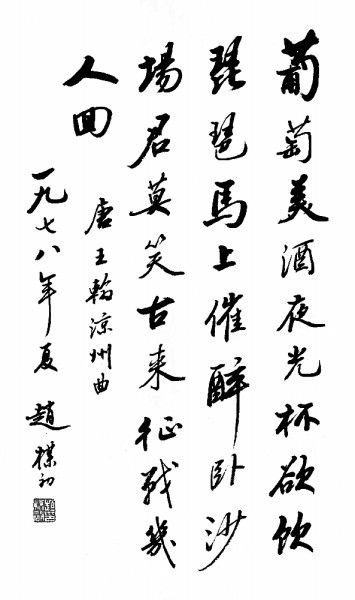 葡萄美酒夜光杯欲饮
琵琶馬上催醉卧沙
場君莫笑古来征战幾
人回
唐王翰涼州曲
一九七八年夏 趙樸初